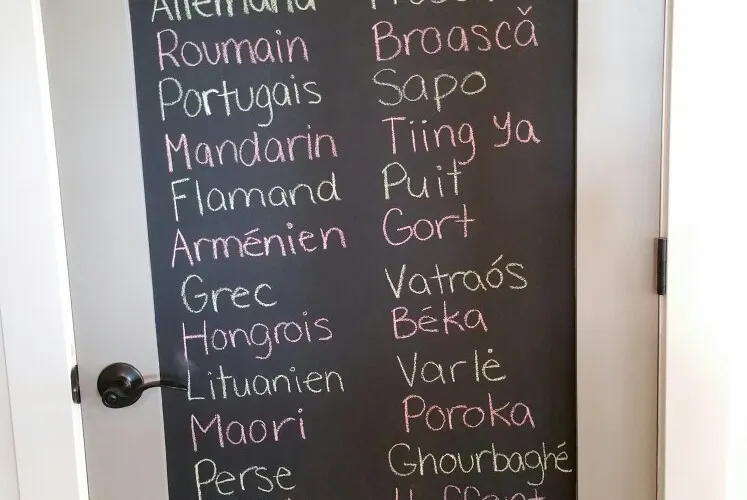 Allemand
Roumain Broască
Portugais Sapo
Mandarin Tiing Ya
Flamand Puit
Arménien Gort
Grec Vatraós
Hongrois Béka
Lituanien Varlė
Maori Poroka
Perse Ghourbaghé